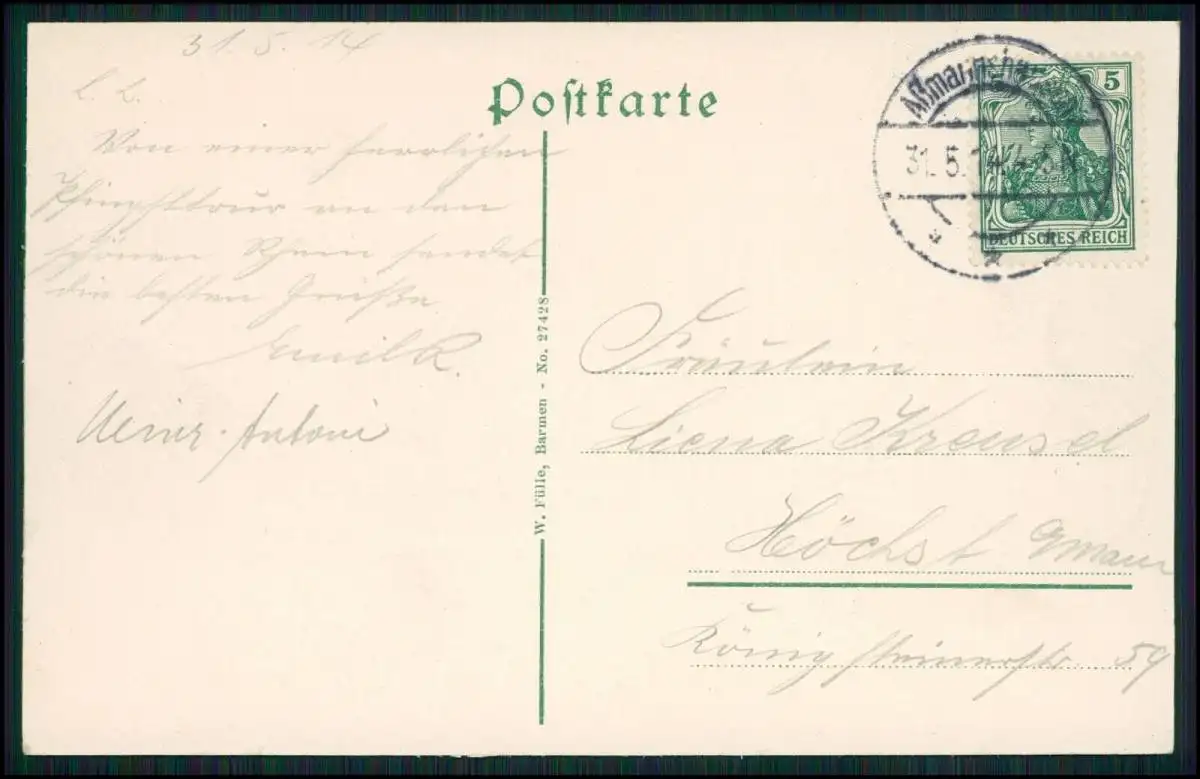 31.5.14
Postkarte
L. L.
Von einer herrlichen
Pfingsttour an den
schönen Rhein sendet
die besten Grüße
Emil R.
Heinr. Antoni
W. Fülle, Barmen - No. 27428
Aßmannshausen
31.5.14
5
DEUTSCHES REICH
Fräulein
Liena Kreusel
Höchst
Königsteinerstr. 59